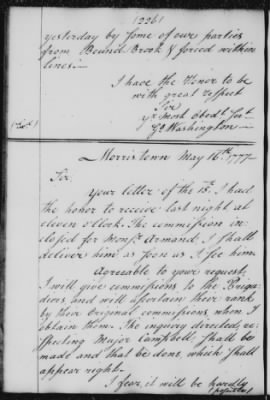 (226)
yesterday by some of our parties
from Bound Brook & forced within
lines.—
I have the Honor to be
with great respect
Sir
yr most Obedt Sert
Go Washington
Morristown May 16th. 1777.
Sir
Your letter of the 15. I had
the honor to receive last night at
eleven o'Clock. The commission in-
closed for Monsr. Armand, I shall
deliver him as soon as I see him.
Agreeable to your request,
I will give commissions to the Briga-
diers, and will ascertain their rank
by their Original commissions, when I
obtain them. The inquiry directed, re-
specting Major Campbell, shall be
made and that be done, which shall
appear right.
I fear, it will be hardly